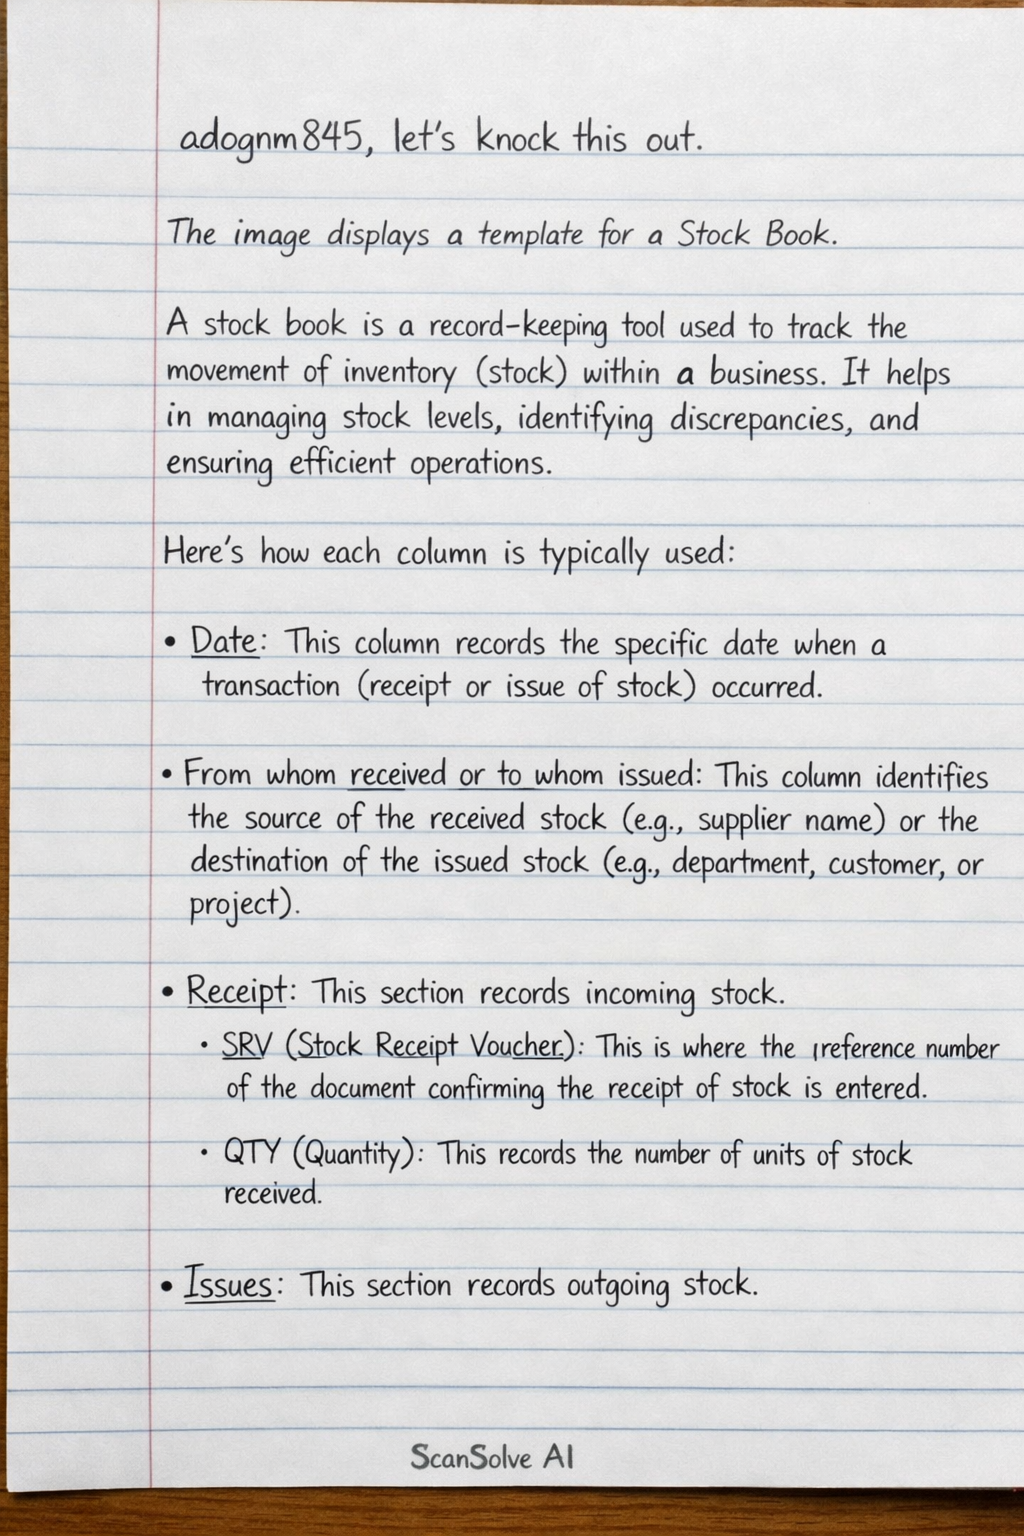 adognm845, let's knock this out.
The image displays a template for a Stock Book.
A stock book is a record-keeping tool used to track the
movement of inventory (stock) within a business. It helps
in managing stock levels, identifying discrepancies, and
ensuring efficient operations.
Here's how each column is typically used:
• Date: This column records the specific date when a
transaction (receipt or issue of stock) occurred.
• From whom received or to whom issued: This column identifies
the source of the received stock (e.g., supplier name) or the
destination of the issued stock (e.g., department, customer, or
project).
• Receipt: This section records incoming stock.
• SRV (Stock Receipt Voucher): This is where the reference number
of the document confirming the receipt of stock is entered.
• QTY (Quantity): This records the number of units of stock
received.
• Issues: This section records outgoing stock.
ScanSolve AI